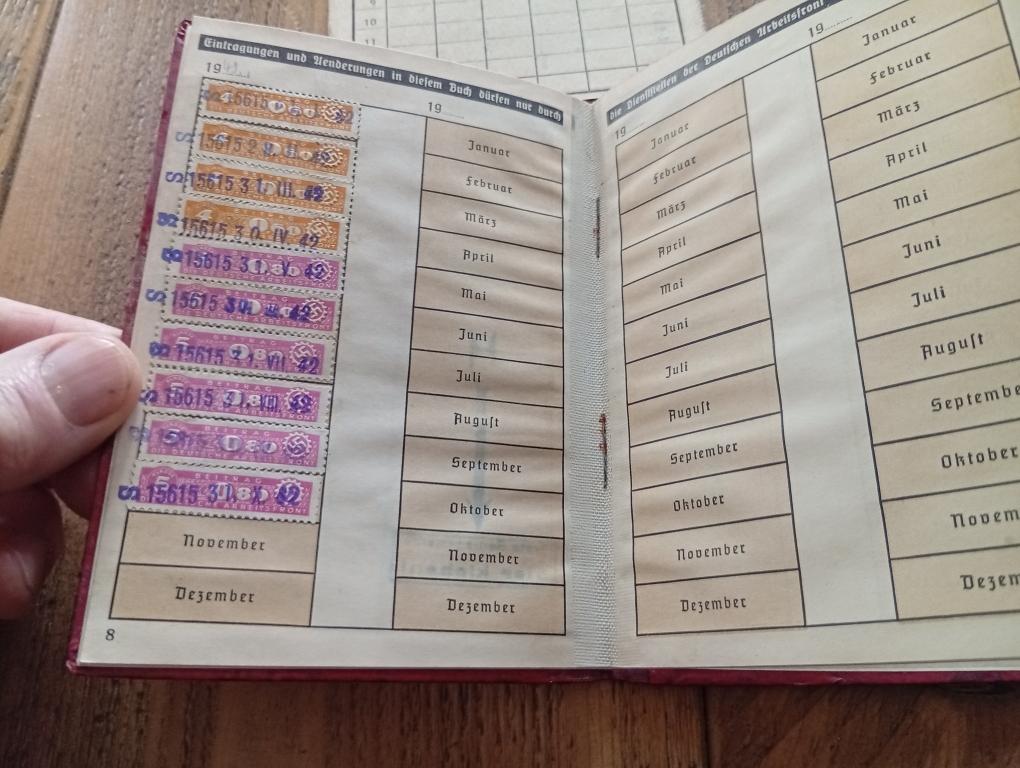 9
10
11
Eintragungen und Aenderungen in diesem Buch dürfen nur durch
19
15615
15615 31. III. 42
15615 30. IV. 42
15615 31. V. 42
15615 42
15615 31. VII 42
15615 31. VIII. 42
BEITRAG
DIE DEUTSCHE ARBEITSFRONT
15615 31. X. 42
November
Dezember
8
19
Januar
Februar
März
April
Mai
Juni
Juli
August
September
Oktober
November
Dezember
die Dienststellen der Deutschen Arbeitsfront
19
Januar
Februar
März
April
Mai
Juni
Juli
August
September
Oktober
November
Dezember
19
Januar
Februar
März
April
Mai
Juni
Juli
August
Septembe
Oktober
Novem
Dezem